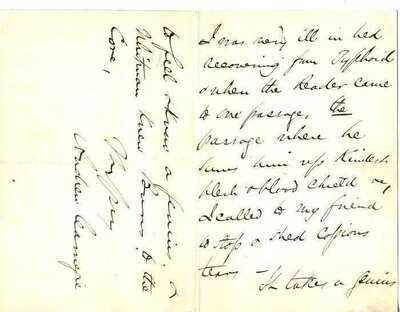 I was very ill in bed
recovering from Typhoid
& when the Reader came
to one passage, the
passage where he
sums him up Kindest
flesh & blood child
I called to my friend
to stop & shed copious
tears –
It takes a genius
to feel & know a genius. &
Whitman knew Burns to the
Core,
Andrew Carnegie